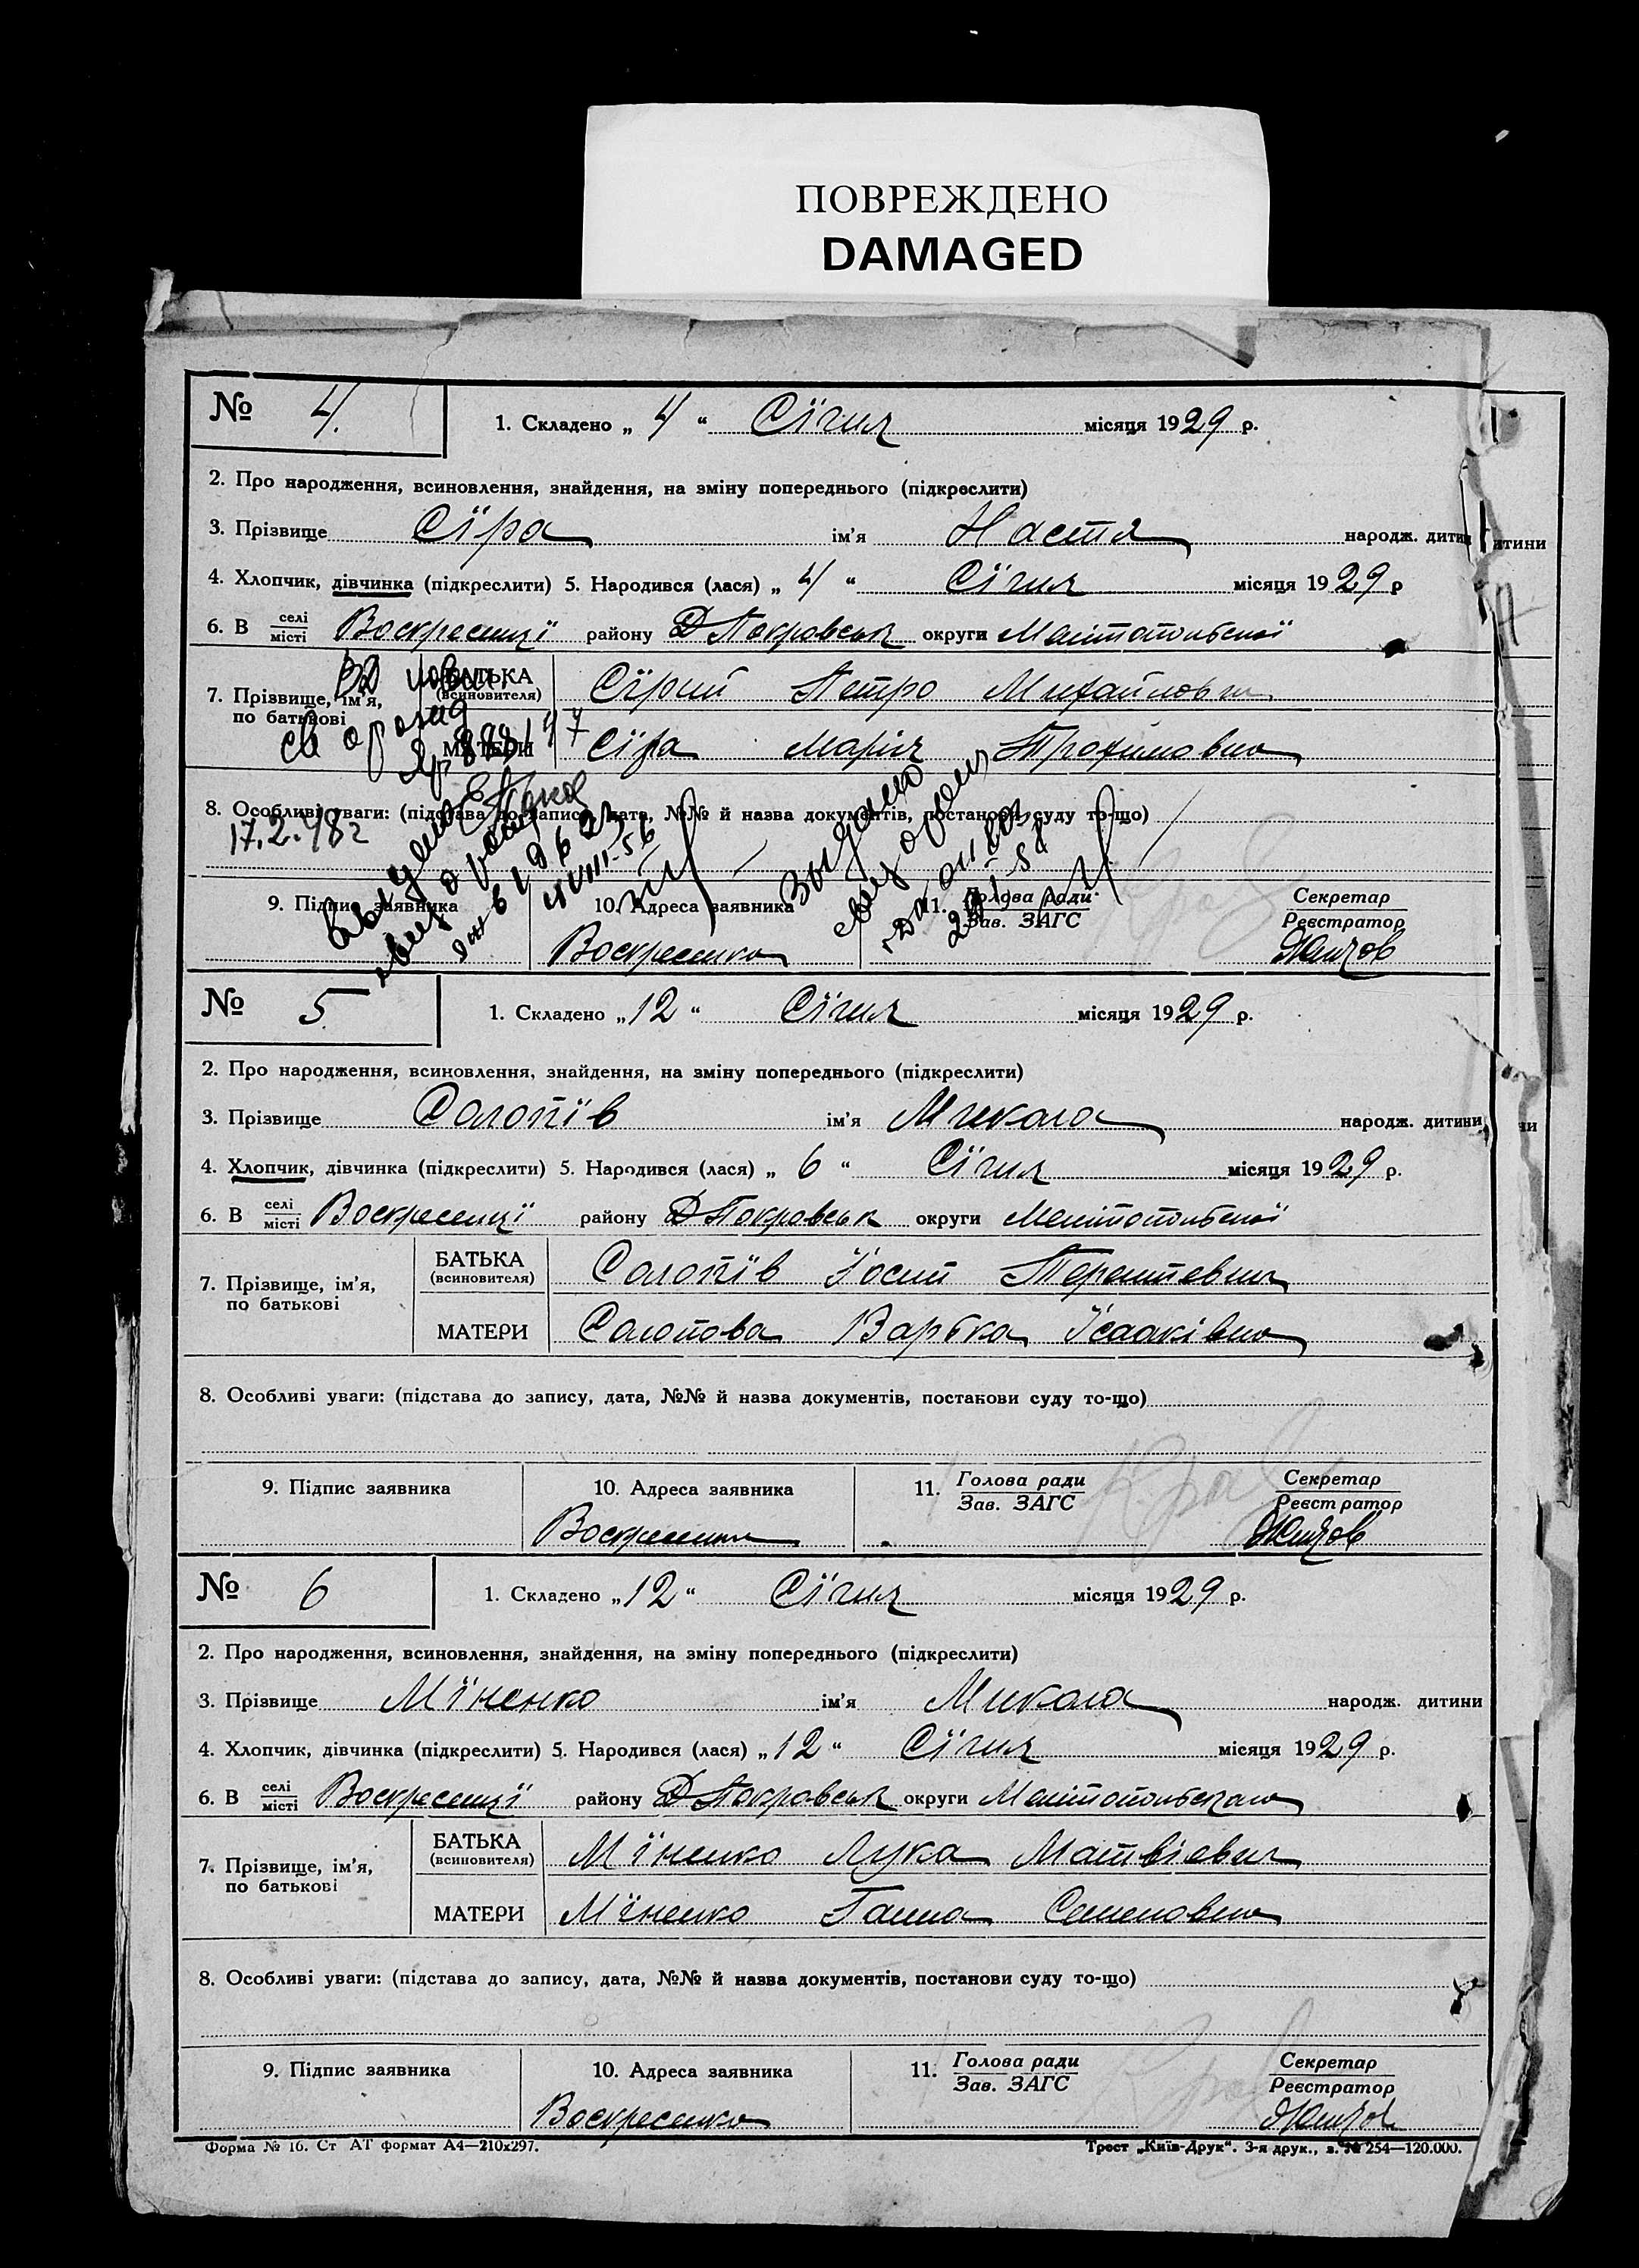 ПОВРЕЖДЕНО
DAMAGED
№ 4.
1. Складено „ 4 “ Січня місяця 1929 р.
2. Про народження, всиновлення, знайдення, на зміну попереднього (підкреслити)
3. Прізвище Сїра ім'я Настя народж. дитини
4. Хлопчик, дівчинка (підкреслити) 5. Народився (лася) „ 4 “ Сїчня місяця 1929 р
6. В селі/місті Воскресенці району Д Покровськ округи Мелітопольської
7. Прізвище, ім'я, по батькові
БАТЬКА (всиновителя) Сїрий Петро Михайлович
МАТЕРИ Сїра Марія Трохимовна
8. Особливі уваги: (підстава до запису, дата, №№ й назва документів, постанови суду то-що)
17.2.48г
Выдано
9. Підпис заявника
10. Адреса заявника Воскресенка
11. Голова ради/Зав. ЗАГС
Секретар/Реєстратор
№ 5.
1. Складено „ 12 “ Сїчня місяця 1929 р.
2. Про народження, всиновлення, знайдення, на зміну попереднього (підкреслити)
3. Прізвище Солопїв ім'я Микола народж. дитини
4. Хлопчик, дівчинка (підкреслити) 5. Народився (лася) „ 6 “ Сїчня місяця 1929 р.
6. В селі/місті Воскресенцї району Д Покровськ округи Мелітопольської
7. Прізвище, ім'я, по батькові
БАТЬКА (всиновителя) Солопїв Їосип Терентевич
МАТЕРИ Солопова Варька Їсааківна
8. Особливі уваги: (підстава до запису, дата, №№ й назва документів, постанови суду то-що)
9. Підпис заявника
10. Адреса заявника Воскресенка
11. Голова ради/Зав. ЗАГС
Секретар/Реєстратор
№ 6
1. Складено „ 12 “ Сїчня місяця 1929 р.
2. Про народження, всиновлення, знайдення, на зміну попереднього (підкреслити)
3. Прізвище Мїненко ім'я Микола народж. дитини
4. Хлопчик, дівчинка (підкреслити) 5. Народився (лася) „ 12 “ Сїчня місяця 1929 р.
6. В селі/місті Воскресенцї району Д Покровськ округи
7. Прізвище, ім'я, по батькові
БАТЬКА (всиновителя) Мїненко Лука Матвіевич
МАТЕРИ Мїненко Ганна Семеновна
8. Особливі уваги: (підстава до запису, дата, №№ й назва документів, постанови суду то-що)
9. Підпис заявника
10. Адреса заявника Воскресенка
11. Голова ради/Зав. ЗАГС
Секретар/Реєстратор
Форма № 16. Ст АТ формат А4—210х297.
Трест „Київ-Друк“. 3-я друк., з. № 254—120.000.